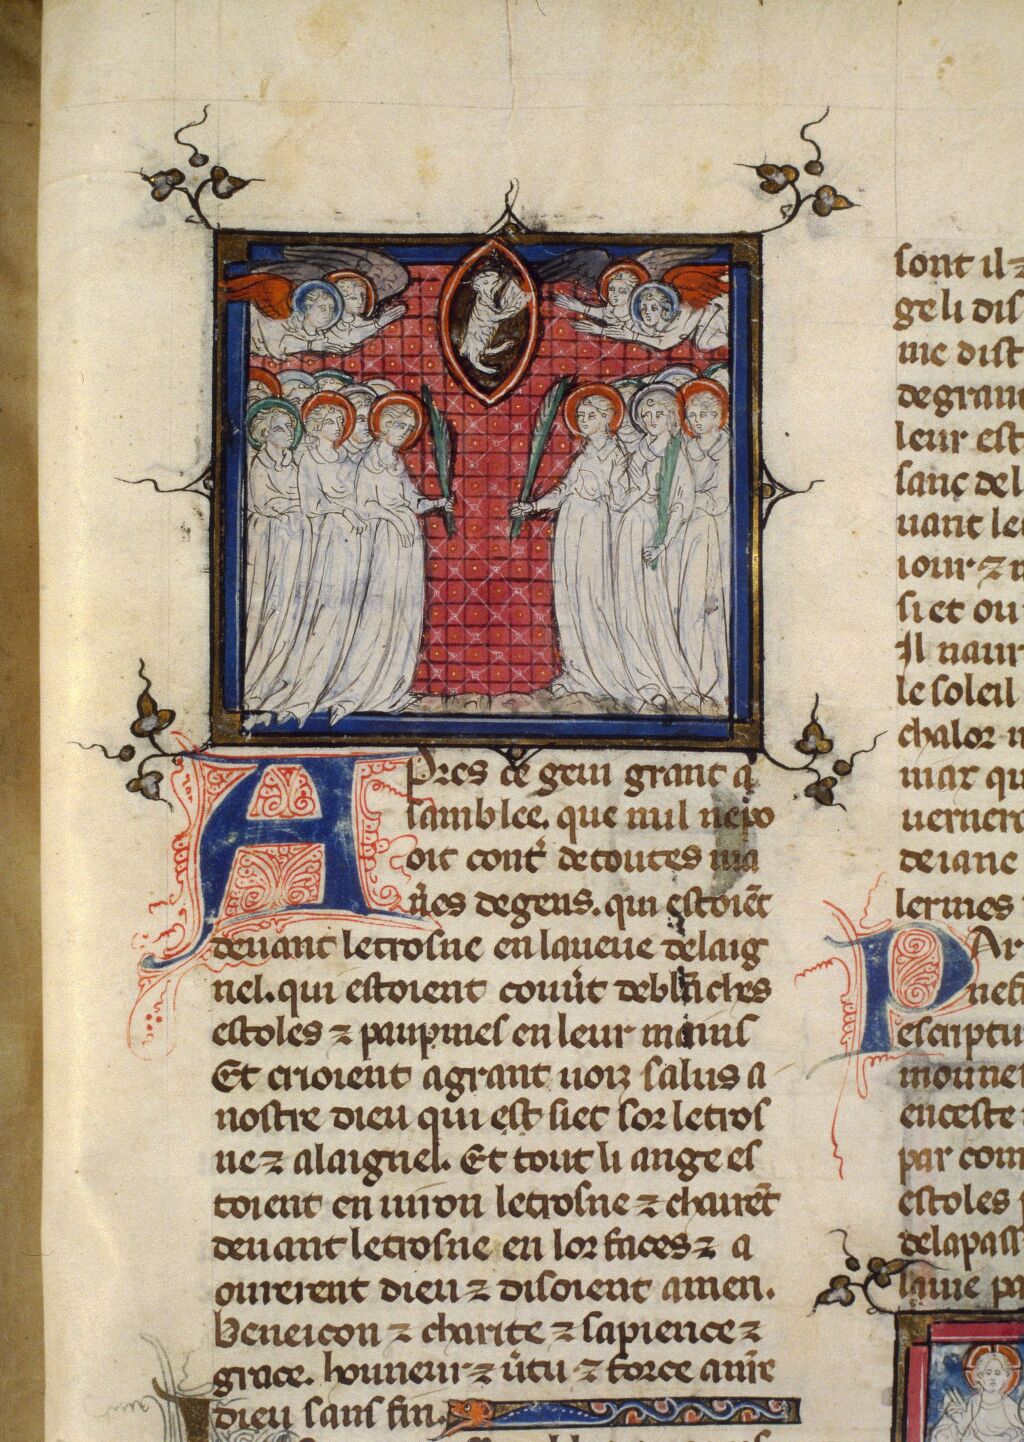 Apres ce geui grant a
samblee. que nul nepo
oit cont' detoutes ma
n'es degens. qui estoiet
deuant letrosne en laueue delaig
nel. qui estoient couu't deblaches
estoles ⁊ paupmes en leur mains
Et crioient agrant uoiz salus a
nostre dieu qui est siet sor letros
ne ⁊ alaignel. Et tout li ange es
toient en uiron letrosne ⁊ chairet
deuant letrosne en lor faces ⁊ a
ourerent dieu ⁊ disoient amen.
beneicon ⁊ charite ⁊ sapience ⁊
grace. honneur ⁊ u'tu ⁊ force a
dieu sans fin.
sont il ⁊
geli dis
me dist
degran
leur est
sanc del
uant le
iour ⁊
si et ou
Il naur
le soleil
chalor
mar qu
uerner
deiane
lermes
Par
nesi
escriptu
mounei
enceste
par com
estoles
delapass
lauie pa